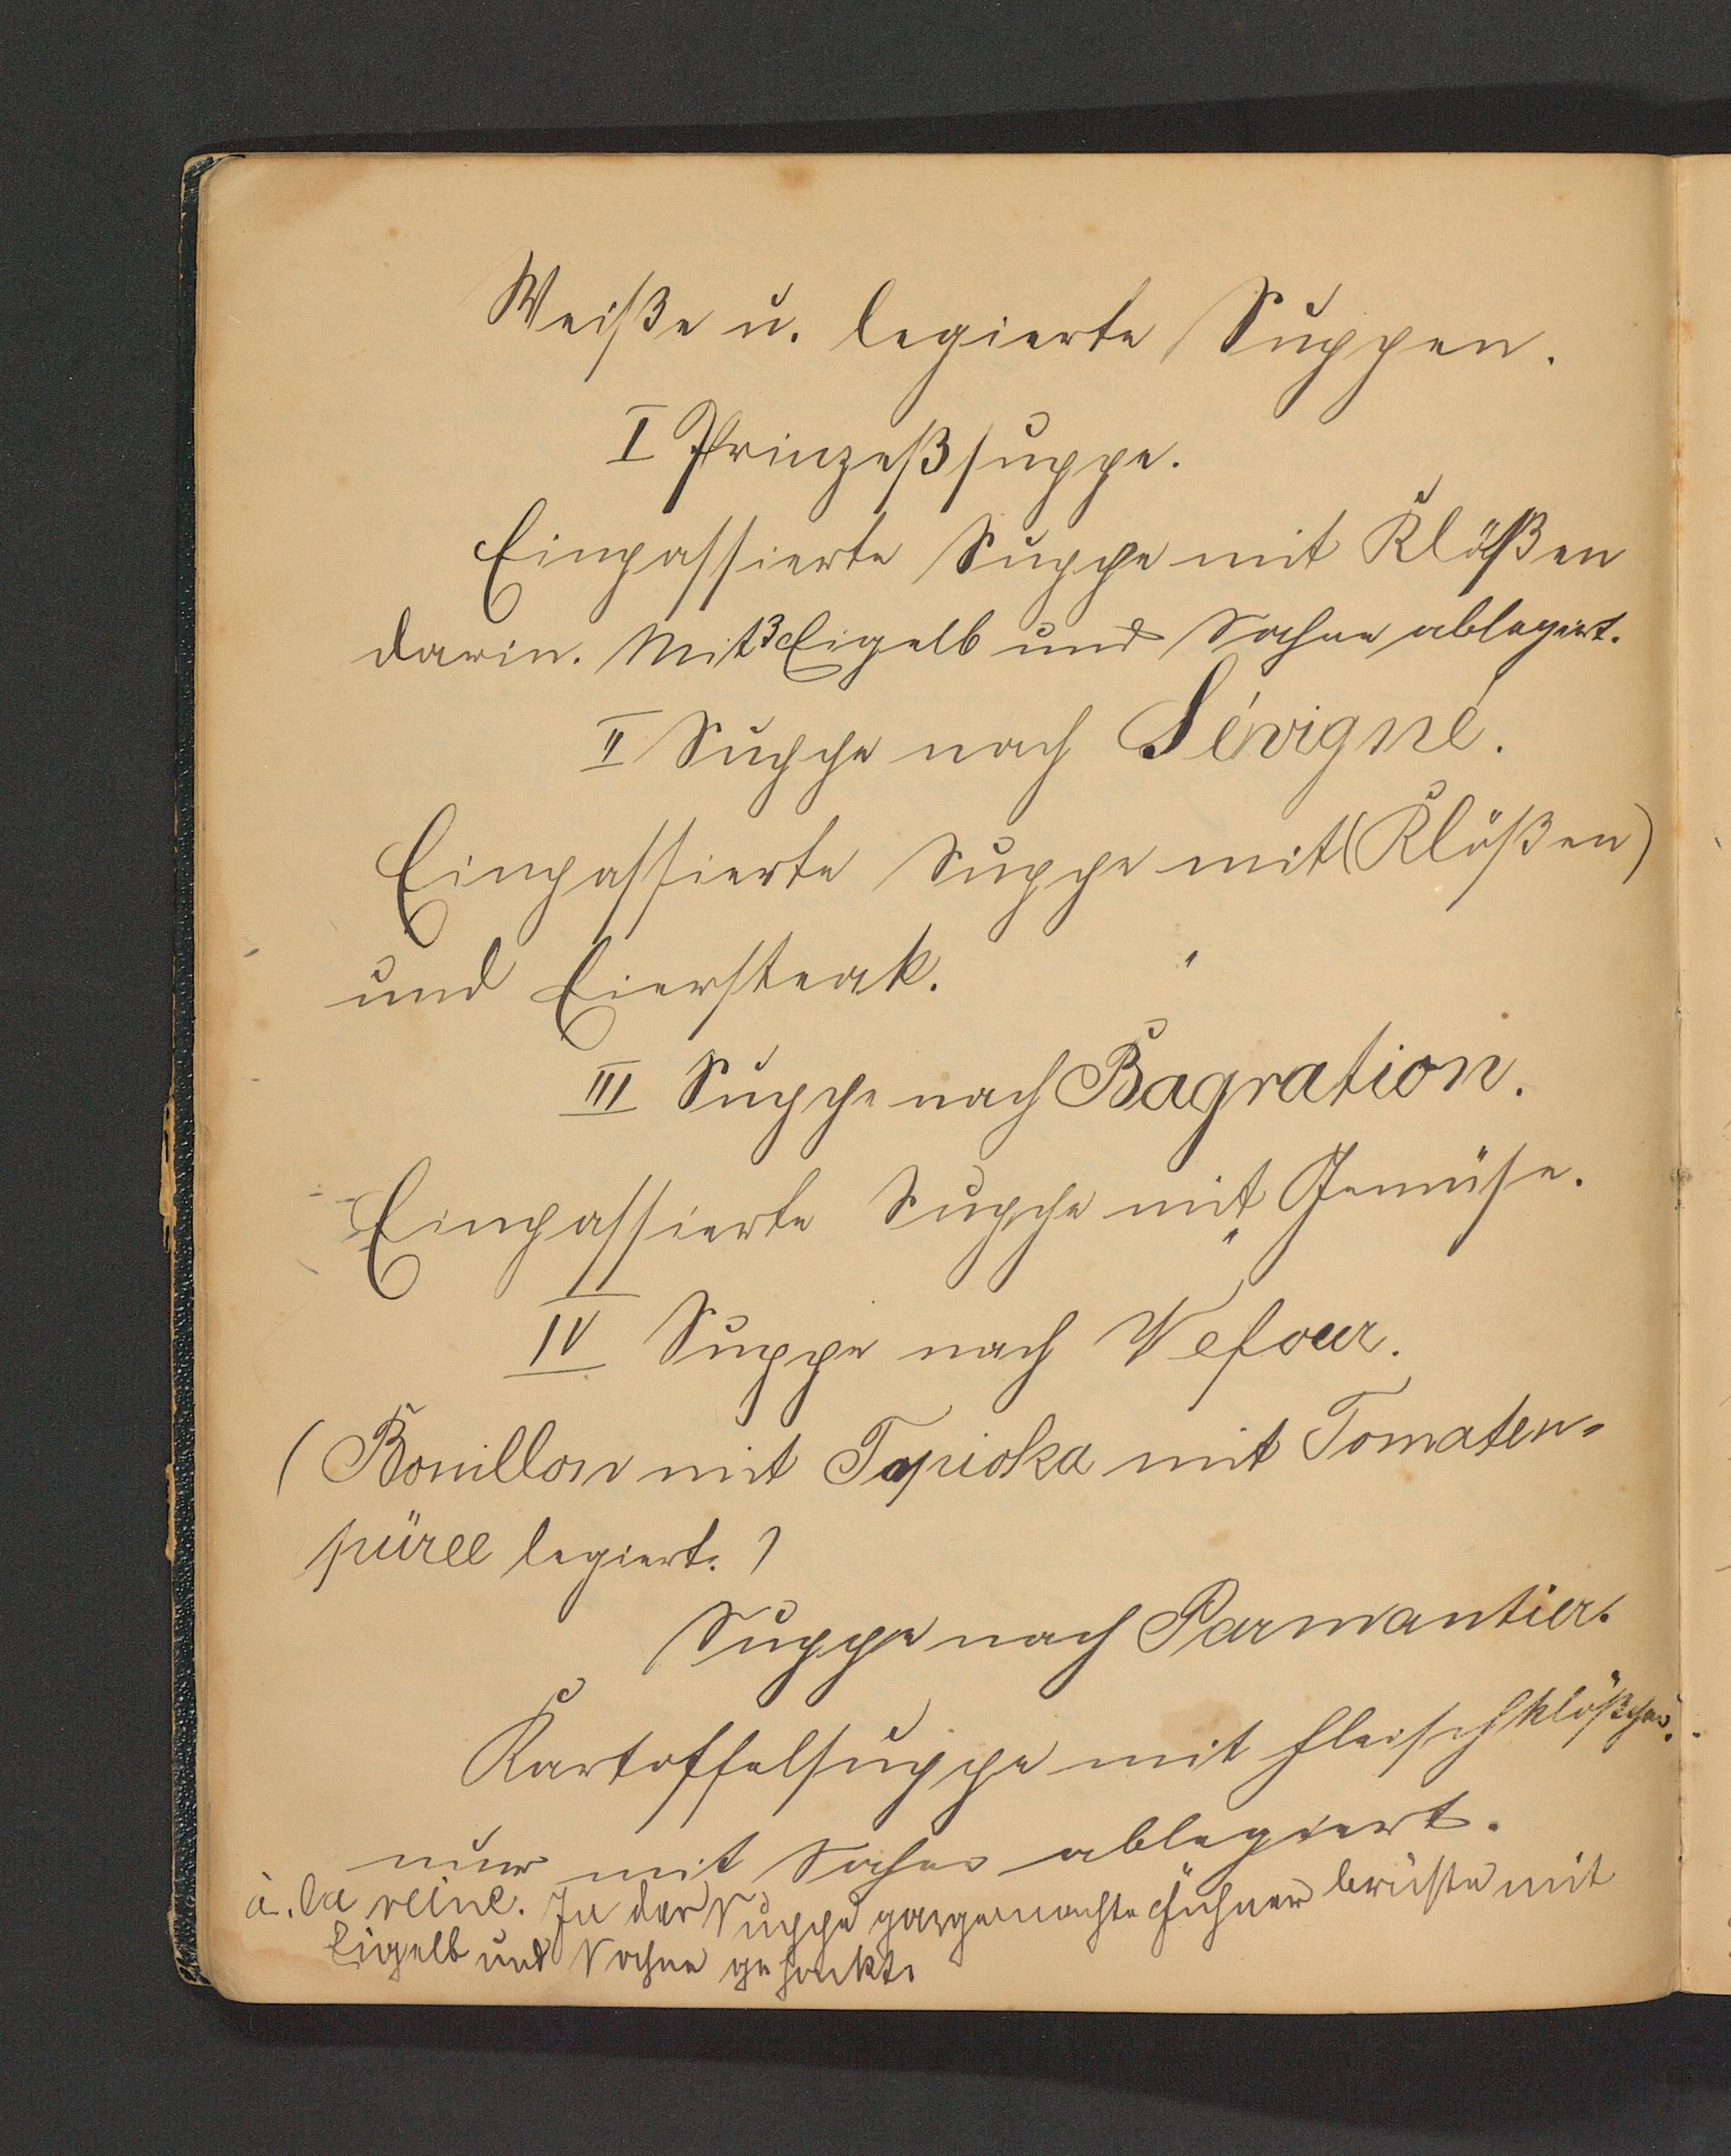 Weiße u. legierte Suppen.
I Prinzeßsuppe.
Einpassierte Suppe mit Klößen
darin. Mit 3 Eigelb und Sahne ablegiert.
II Suppe nach Sévigné.
Einpassierte Suppe mit (Klößen)
und Eiersteak.
III Suppe nach Bagration.
Einpassierte Suppe mit Gemüse.
IV Suppe nach Vefour.
(Bouillon mit Tapioka mit Tomaten-
püree legiert.)
Suppe nach Parmantier.
Kartoffelsuppe mit Fleischklößchen.
nur mit Sahne ablegiert.
à. la reine. In der Suppe gargemachte Hühnerbrüste mit
Eigelb und Sahne gehackt.